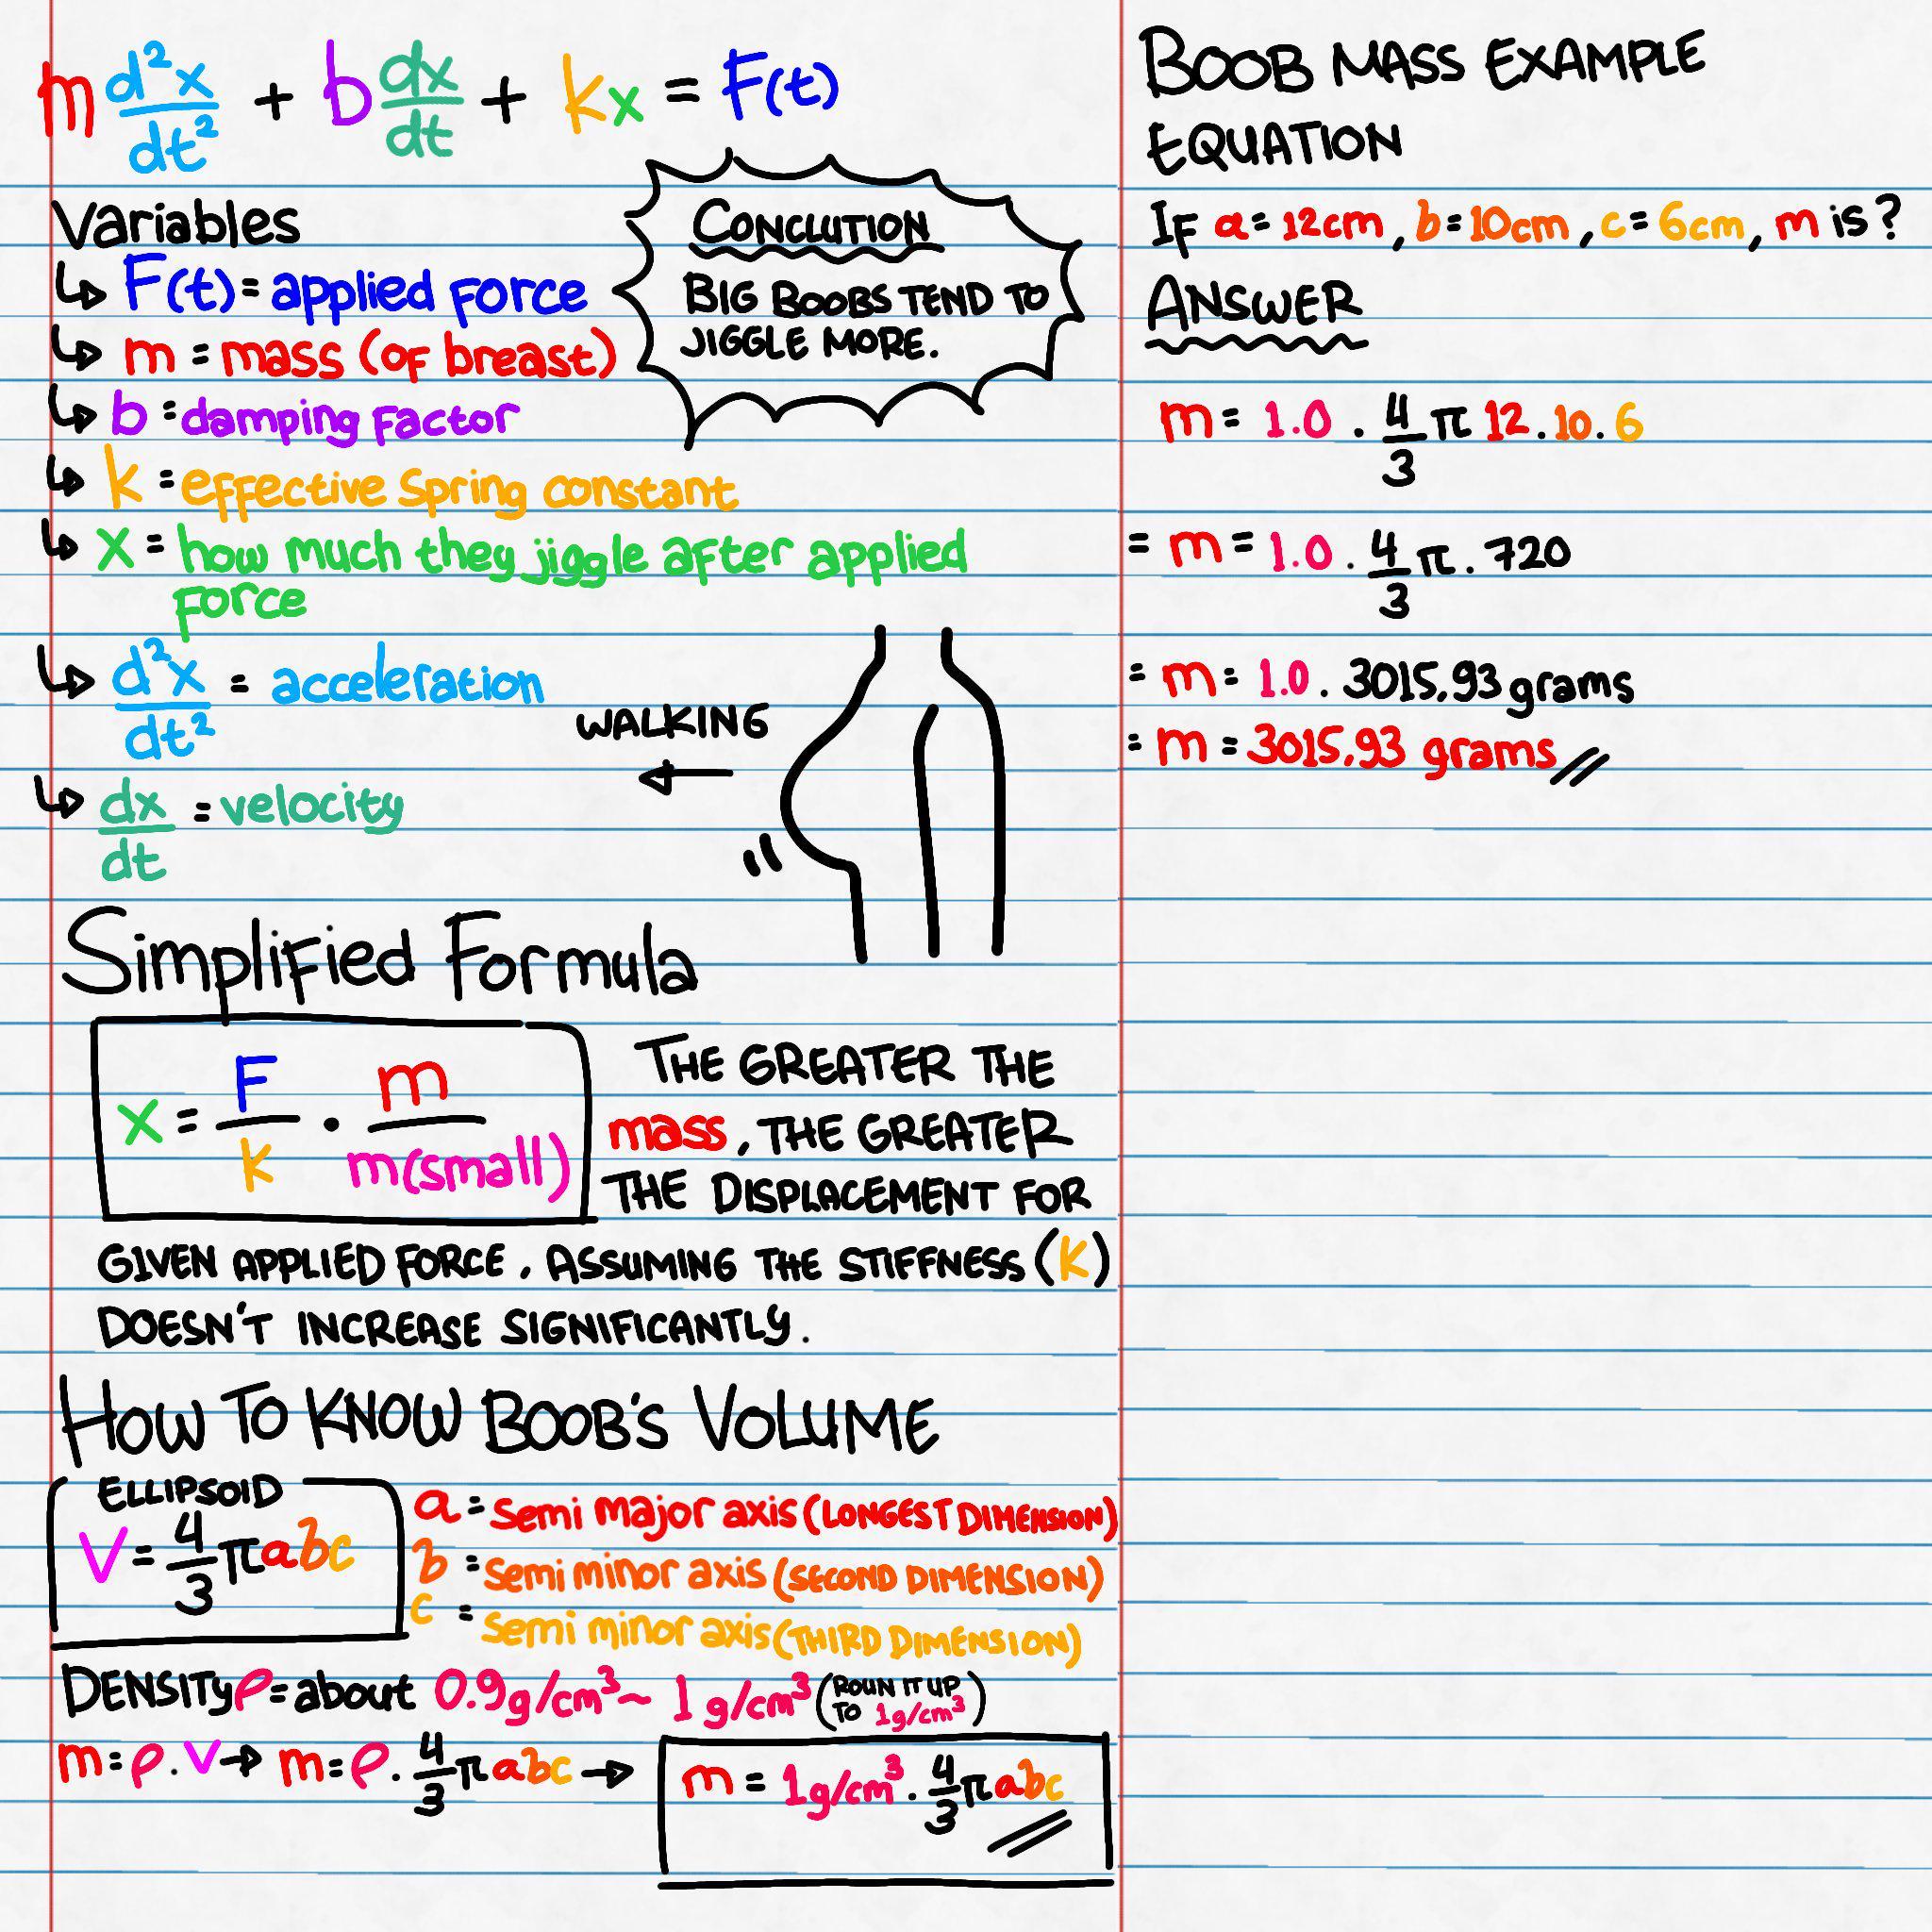 m d²x/dt² + b dx/dt + kx = F(t)
Variables
↳ F(t) = applied force
↳ m = mass (of breast)
↳ b = damping factor
↳ k = effective spring constant
↳ x = how much they jiggle after applied
force
↳ d²x/dt² = acceleration
↳ dx/dt = velocity
CONCLUTION
BIG BOOBS TEND TO
JIGGLE MORE.
WALKING
←
Simplified Formula
x = F/k · m/m(small)
THE GREATER THE
mass, THE GREATER
THE DISPLACEMENT FOR
GIVEN APPLIED FORCE, ASSUMING THE STIFFNESS (k)
DOESN'T INCREASE SIGNIFICANTLY.
HOW TO KNOW BOOB'S VOLUME
ELLIPSOID
V = 4/3 πabc
a = semi major axis (LONGEST DIMENSION)
b = semi minor axis (SECOND DIMENSION)
c = semi minor axis (THIRD DIMENSION)
DENSITY ρ = about 0.9g/cm³ ~ 1g/cm³ (ROUN IT UP
TO 1g/cm³)
m = ρ . V → m = ρ . 4/3 πabc → m = 1g/cm³ . 4/3 πabc
BOOB MASS EXAMPLE
EQUATION
IF a = 12cm, b = 10cm, c = 6cm, m is?
ANSWER
m = 1.0 . 4/3 π 12.10.6
= m = 1.0 . 4/3 π . 720
= m = 1.0 . 3015,93 grams
= m = 3015,93 grams